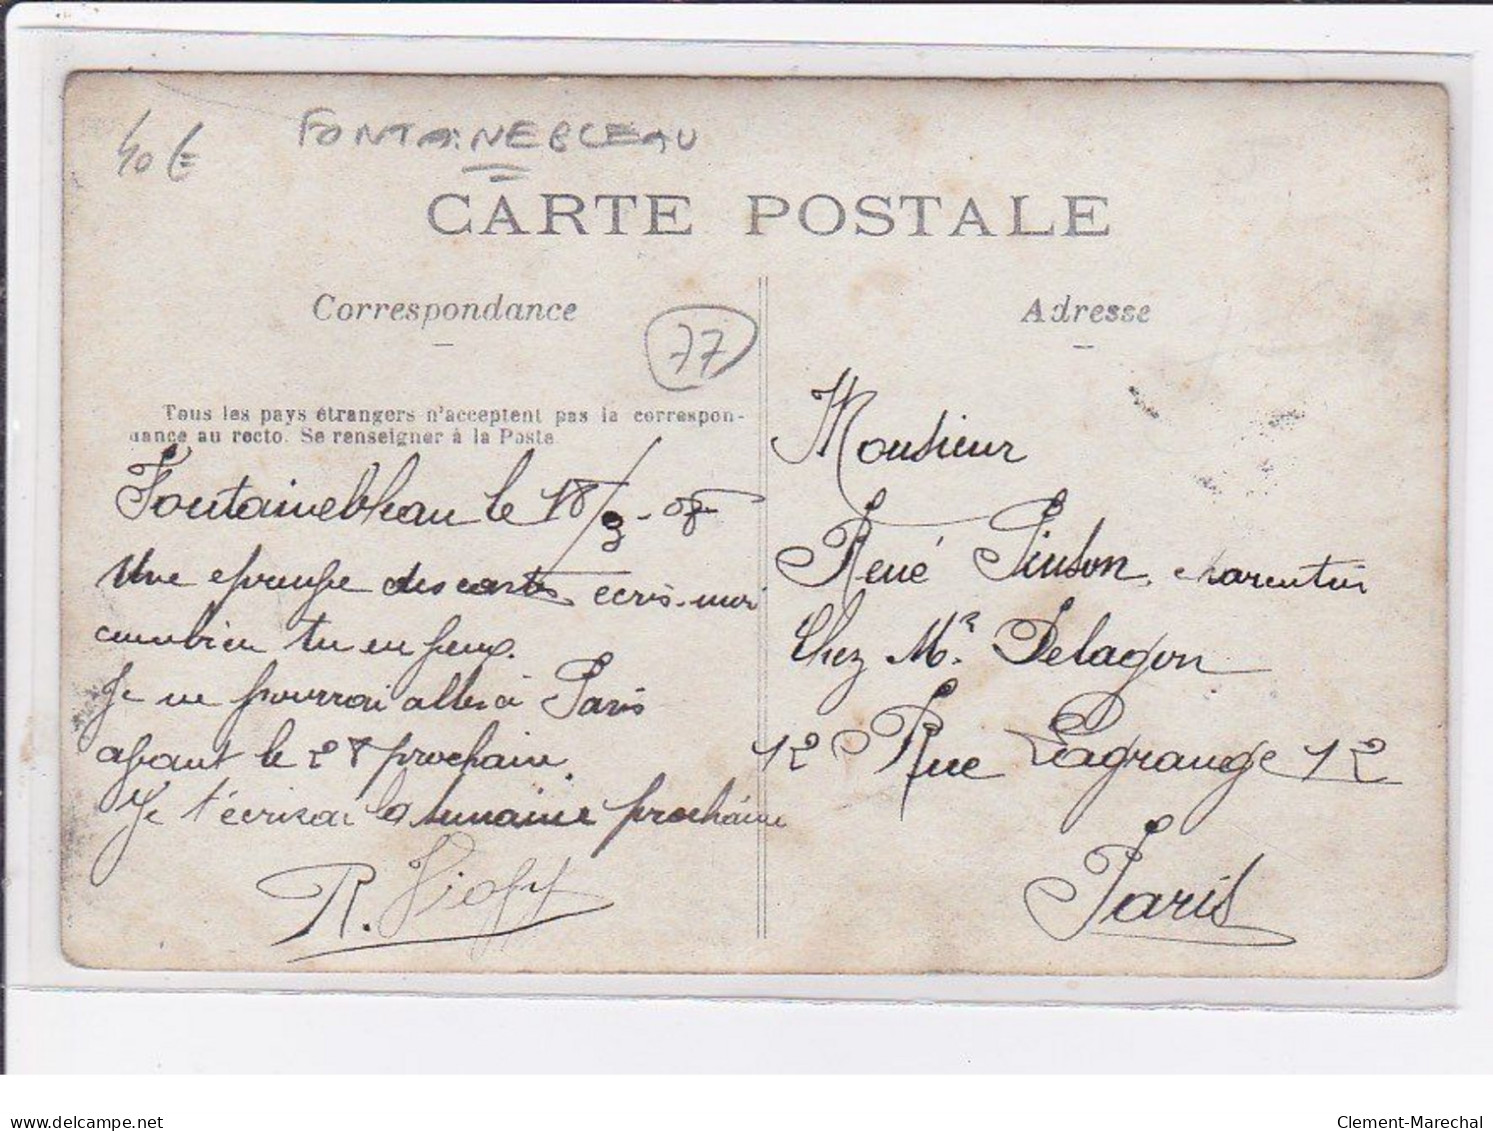 40 €
FONTAINEBLEAU
CARTE POSTALE
Correspondance
77
Tous les pays étrangers n'acceptent pas la correspon-
dance au recto. Se renseigner à la Poste.
Fontainebleau le 18/9-08
Une épreuve des cartes écris-moi
combien tu en veux.
Je ne pourrai aller à Paris
avant le 27 prochain.
Je t'écrirai la semaine prochaine
R.
Adresse
Monsieur
René Pinson, charentin
Chez Mr. Delagon
12 Rue Lagrange 12
Paris
delcampe.net
Clement-Marechal